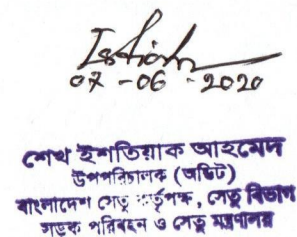 Ishtiak
07-06-2020
শেখ ইশতিয়াক আহমেদ
উপপরিচালক (অডিট)
বাংলাদেশ সেতু কর্তৃপক্ষ, সেতু বিভাগ
সড়ক পরিবহন ও সেতু মন্ত্রণালয়